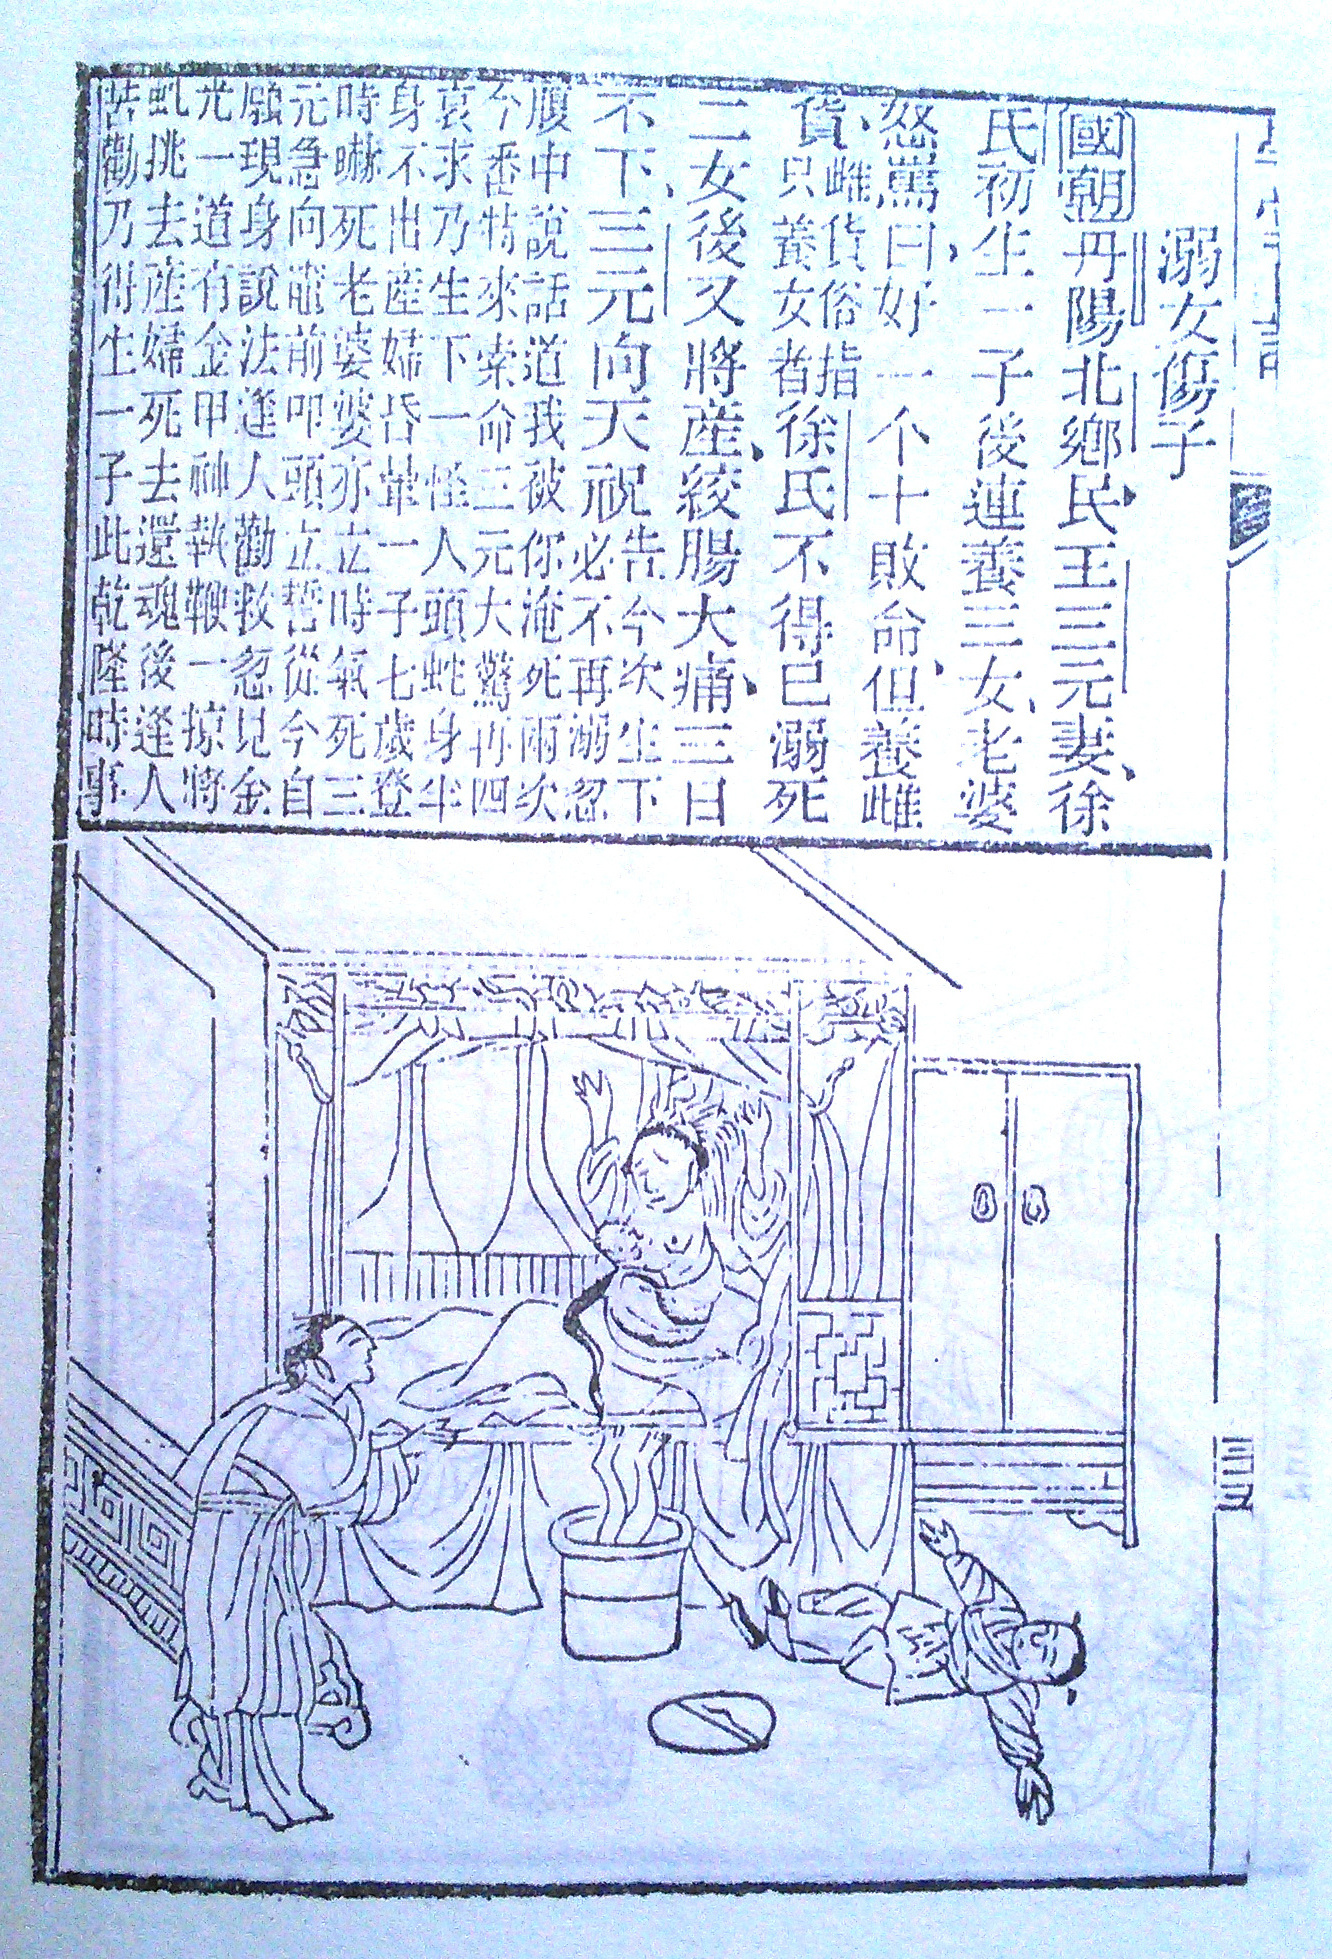 溺女傷子
國朝丹陽北鄉民王三元妻徐
氏初生一子後連養三女老婆
怒罵曰好一个十敗命但養雌
貨雌貨俗指只養女者徐氏不得已溺死
二女後又將産絞腸大痛三日
不下三元向天祝告今次生下必不再溺忽
腹中說話道我被你淹死兩次
今番特來索命三元大驚再四
哀求乃生下一怪人頭蛇身半
身不出産婦昏暈一子七歲登
時嚇死老婆婆亦立時氣死三
元急向竈前叩頭立誓從今自
願現身說法逢人勸救忽見金
光一道有金甲神執鞭一掠將
虬挑去産婦死去還魂後逢人
苦勸乃得生一子此乾隆時事